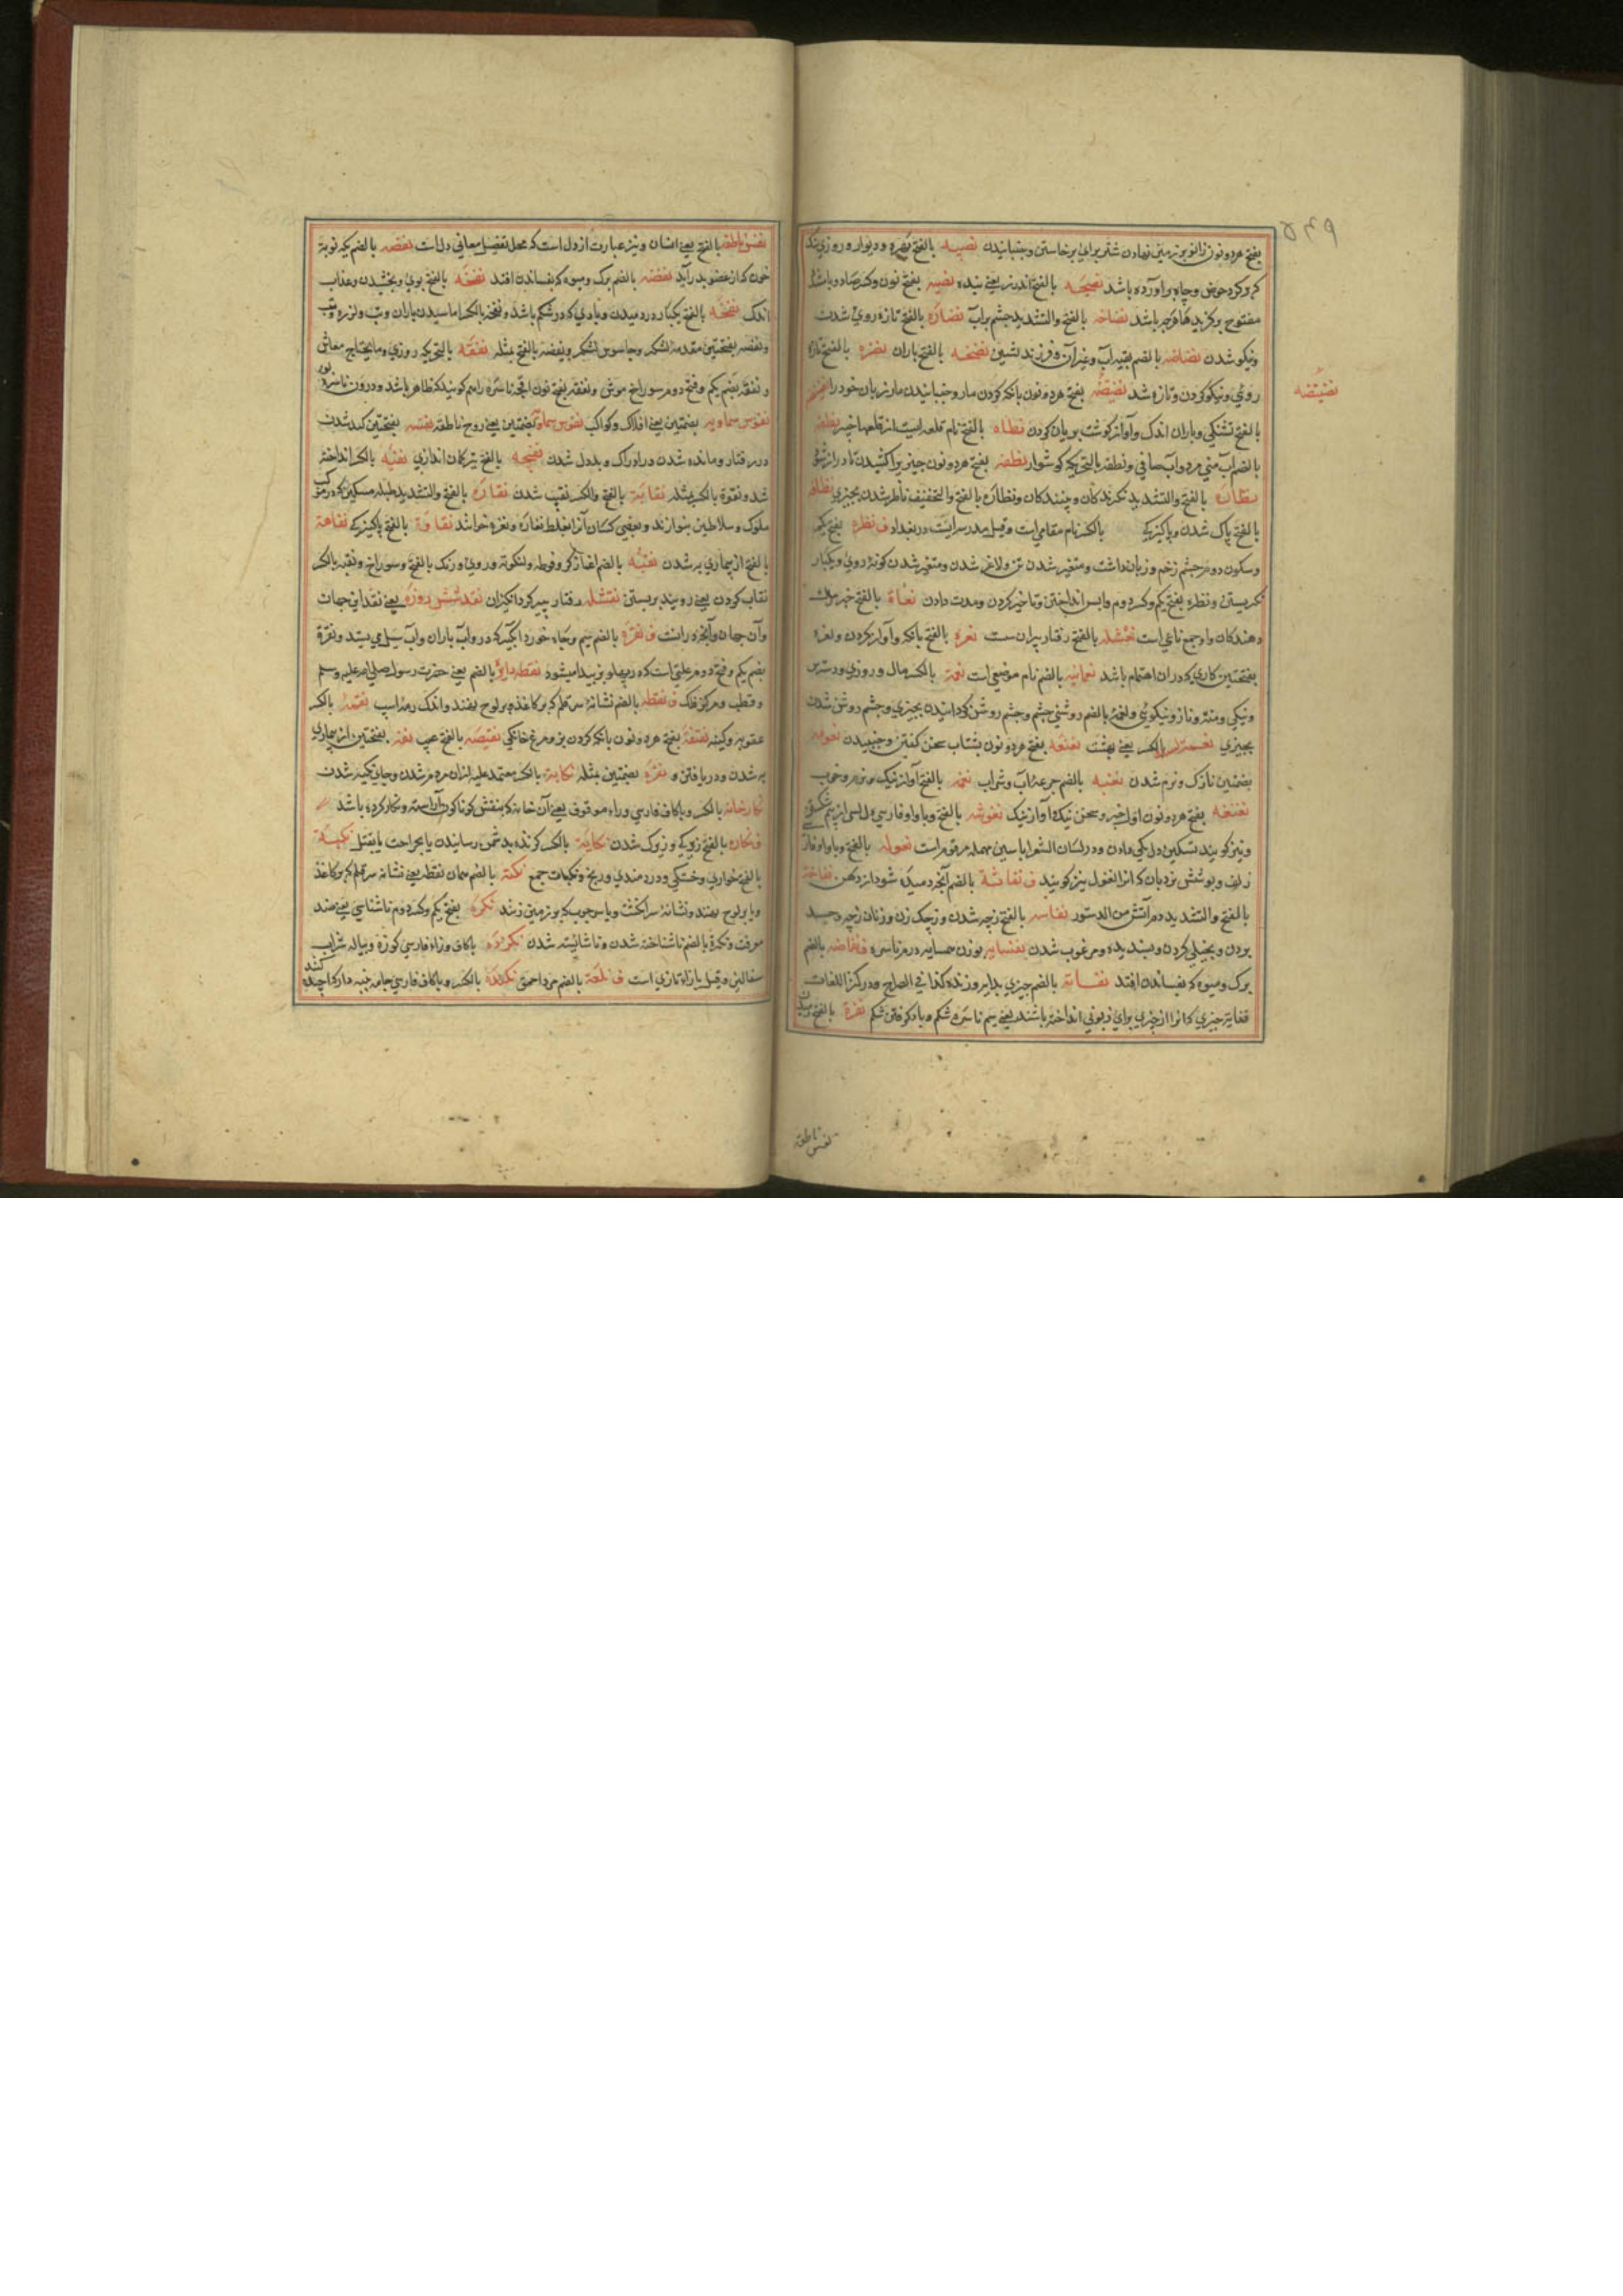 بفتح هردو نون زانو بر زمین نهادن شتر برای برخاستن و جنبانیدن نصیبه بالفتح بهره و دیوار و روزی نیک
که گرد حوض و چاه برآورده باشد نصیحه بالفتح اندرز یعنی پند نصیه بفتح نون و کسر صاد و یا
مفتوح برگزیده هر چه باشد نضاخه بالفتح والتشدید چشمه پرآب نضارة بالفتح تازه روی شدن
و نیکو شدن نضاضه بالضم بقیه آب و غیر آن و فرزند پسین نضخه بالفتح باران نضره بالفتح تازه
نضیضه
روی و نیکو کردن و تازه شد نضنضه بفتح هردو نون بانک کردن مار و جنبانیدن مار زبان خود را
بالفتح تشنکی و باران اندک و آواز گوشت بریان کردن نطاه بالفتح نام قلعه ایست از قلعهای خیبر نطفه
بالضم آب منی مرد و آب صافی و نطفه بالتحریک گوشوار نطنطه بفتح هردو نون چیزیرا کشیدن تا دراز شود
نظاره بالفتح والتشدید نکرندکان و بینندکان و نظاره بالفتح والتخفیف ناظر شدن بچیزی نظافه
بالفتح پاک شدن و پاکیزکی بالکسر نام مقامی است و قیل مدرسه ایست در بغداد ف نظره بفتح یکم
و سکون دوم چشم زخم و زیان داشت و متغیر شدن تن و لاغر شدن و متغیر شدن گونه روی و یکبار
نکریستن و نظره بفتح یکم و کسر دوم واپس انداختن و تاخیر کردن و مدت دادن نعاة بالفتح خبر مرگ
دهندکان و او جمع ناعی است نعثله بالفتح رفتار پیران سست نعره بالفتح بانک و آواز کردن و نعره
بفتحتین کاری که دران اهتمام باشد نعمانیه بالضم نام موضعی است نعمة بالکسر مال و روزی و دسترس
و نیکی و منت و ناز و نیکوئی و نعمة بالضم روشنی چشم و چشم روشن گردانیدن بچیزی و چشم روشن شدن
بچیزی بالکسر یعنی بهشت نعنعه بفتح هردو نون بشتاب سخن گفتن و جنبیدن نعومه
بضمتین نازک و نرم شدن نغبه بالضم جرعه آب و شراب نغمه بالفتح آواز نیک و نرم و خوب
نغنغه بفتح هردو نون آواز خوب و سخن نیک و آواز نیک نغوشه بالفتح و با واو فارسی
و نیز گویند تسکین دل یکی دادن و در لسان الشعرا با سین مهمله مرقوم است نغوله بالفتح و با واو فارسی
زلف و پوشش نردبان که آنرا نغول نیز گویند ف نفاثة بالضم آنچه دمیده شود از دهن نفاخة
بالفتح والتشدید دم آتش من الدستور نفاسه بالفتح زچه شدن و زچکی زن و زنان زچه و حسد
بردن و بخیلی کردن و پسندیده و مرغوب شدن نفسایه بوزن همسایه درم ناسره ف نفاضه بالضم
برگ و میوه که بفشاندن افتد نفایة بالضم چیزی بدل پروزنده کذا فی الصراح و در کنز اللغات
نفایه چیزی که آنرا از چیزی برای زبونی انداخته باشند یعنی سیم ناسره شکم و باد کوفتن شکم نفره بالفتح
نفس ناطقه
نفس ناطقه بالفتح یعنی انسان و نیز عبارت از دل است که محل تفصیل معانی دل است نفضه بالضم یک نوبة
خون که از عضو بدر آید نفضه بالضم برگ و میوه که بفشاندن افتد نفحه بالفتح بوی و بخشیدن و عذاب
اندک نفخه بالفتح یکبار دردمیدن و بادی که در شکم باشد و نفخه بالکسر آماسیدن باران و تب و لرزه تب
و نفضه بفتحتین مقدمه لشکر و جاسوس لشکر و نفیضه بالفتح مثله نفقه بالتحریک روزی و مایحتاج معاش
و نفقه بضم یکم و فتح دوم سوراخ موش و نفقه بفتح نون آنچه ناسره راهم گویند که ظاهر باشد و درون ناسره
نفوس سماویه بضمتین یعنی افلاک و کواکب بضمتین یعنی روح ناطقه نفهه بفتحتین کند شدن
در رفتار و مانده شدن در ادراک و بددل شدن نفیحه بالفتح تیر کمان اندازی نفیه بالکسر انداخته
شد و نفوة بالکسر مثله نقابة بالفتح والکسر نقیب شدن نقاره بالفتح والتشدید طبله مسکین که در موکب
ملوک و سلاطین بنوازند و بعضی کسان آنرا بغلط نغاره و نغزه خوانند نقاوة بالفتح پاکیزکی نقاهة
بالفتح از بیماری به شدن نقبه بالضم آغاز گر و فوطه و لنکوته و روی و رنگ بالفتح و سوراخ و نقبه بالکسر
نقاب کردن یعنی روی بند بربستن نقثله رفتار پیر گرد انگیزان نقد شش روزه یعنی نقد این جهان
و آن جهان و آنچه دراینست ف نقره بالضم سیم و چاه خورد آبگیر که در و آب باران و آب سیل می ایستد و نقرة
بضم یکم و فتح دوم علتی است که در پهلو بز پیدا میشود نقطه دایره بالضم یعنی حضرت رسول صلی الله علیه وسلم
و قطب و مرکز فلک ف نقطه بالضم نشانه سر قلم که بر کاغذ و بر لوح نهند و اندک رمه اسپ نقمة بالکسر
عقوبة و کینه نقنقة بفتح هردو نون بانک کردن بز و مرغ خانکی نقیصه بالفتح عیب نقه بفتحتین از بیماری
به شدن و دریافتن و نقره بضمتین مثله نکابة بالکسر معتمد علیه از ان مردم شدن و جای تکیه شدن
نگارخانه بالکسر و با کاف فارسی و راء موقوف یعنی آن خانه که بنقش گوناگون آراسته و نگار کرده باشد
ف نکاره بالفتح زیرکی و زیرک شدن نکایة بالکسر گزند بدشمن رسانیدن یا بجراحت یا بقتل نکبة
بالفتح خواری و خستکی و دردمندی و رنج و نکبات جمع نکته بالضم همان نقطه یعنی نشانه سر قلم که بر کاغذ
و یا بر لوح نهند و نشانه سر انگشت و یا سر چوب که بر زمین زنند نکره بفتح یکم و کسر دوم ناشناسی یعنی ضد
معرفت و نکرة بالضم ناشناخته شدن و ناشایسته شدن نکوزه باکاف و زاء فارسی کوزه و پیاله شراب
سفالین و قیل بازاء تازی است ف نکعة بالضم مرد احمق نکنده بالکسر و باکاف فارسی جامه پنبه دار که آچیده کنند